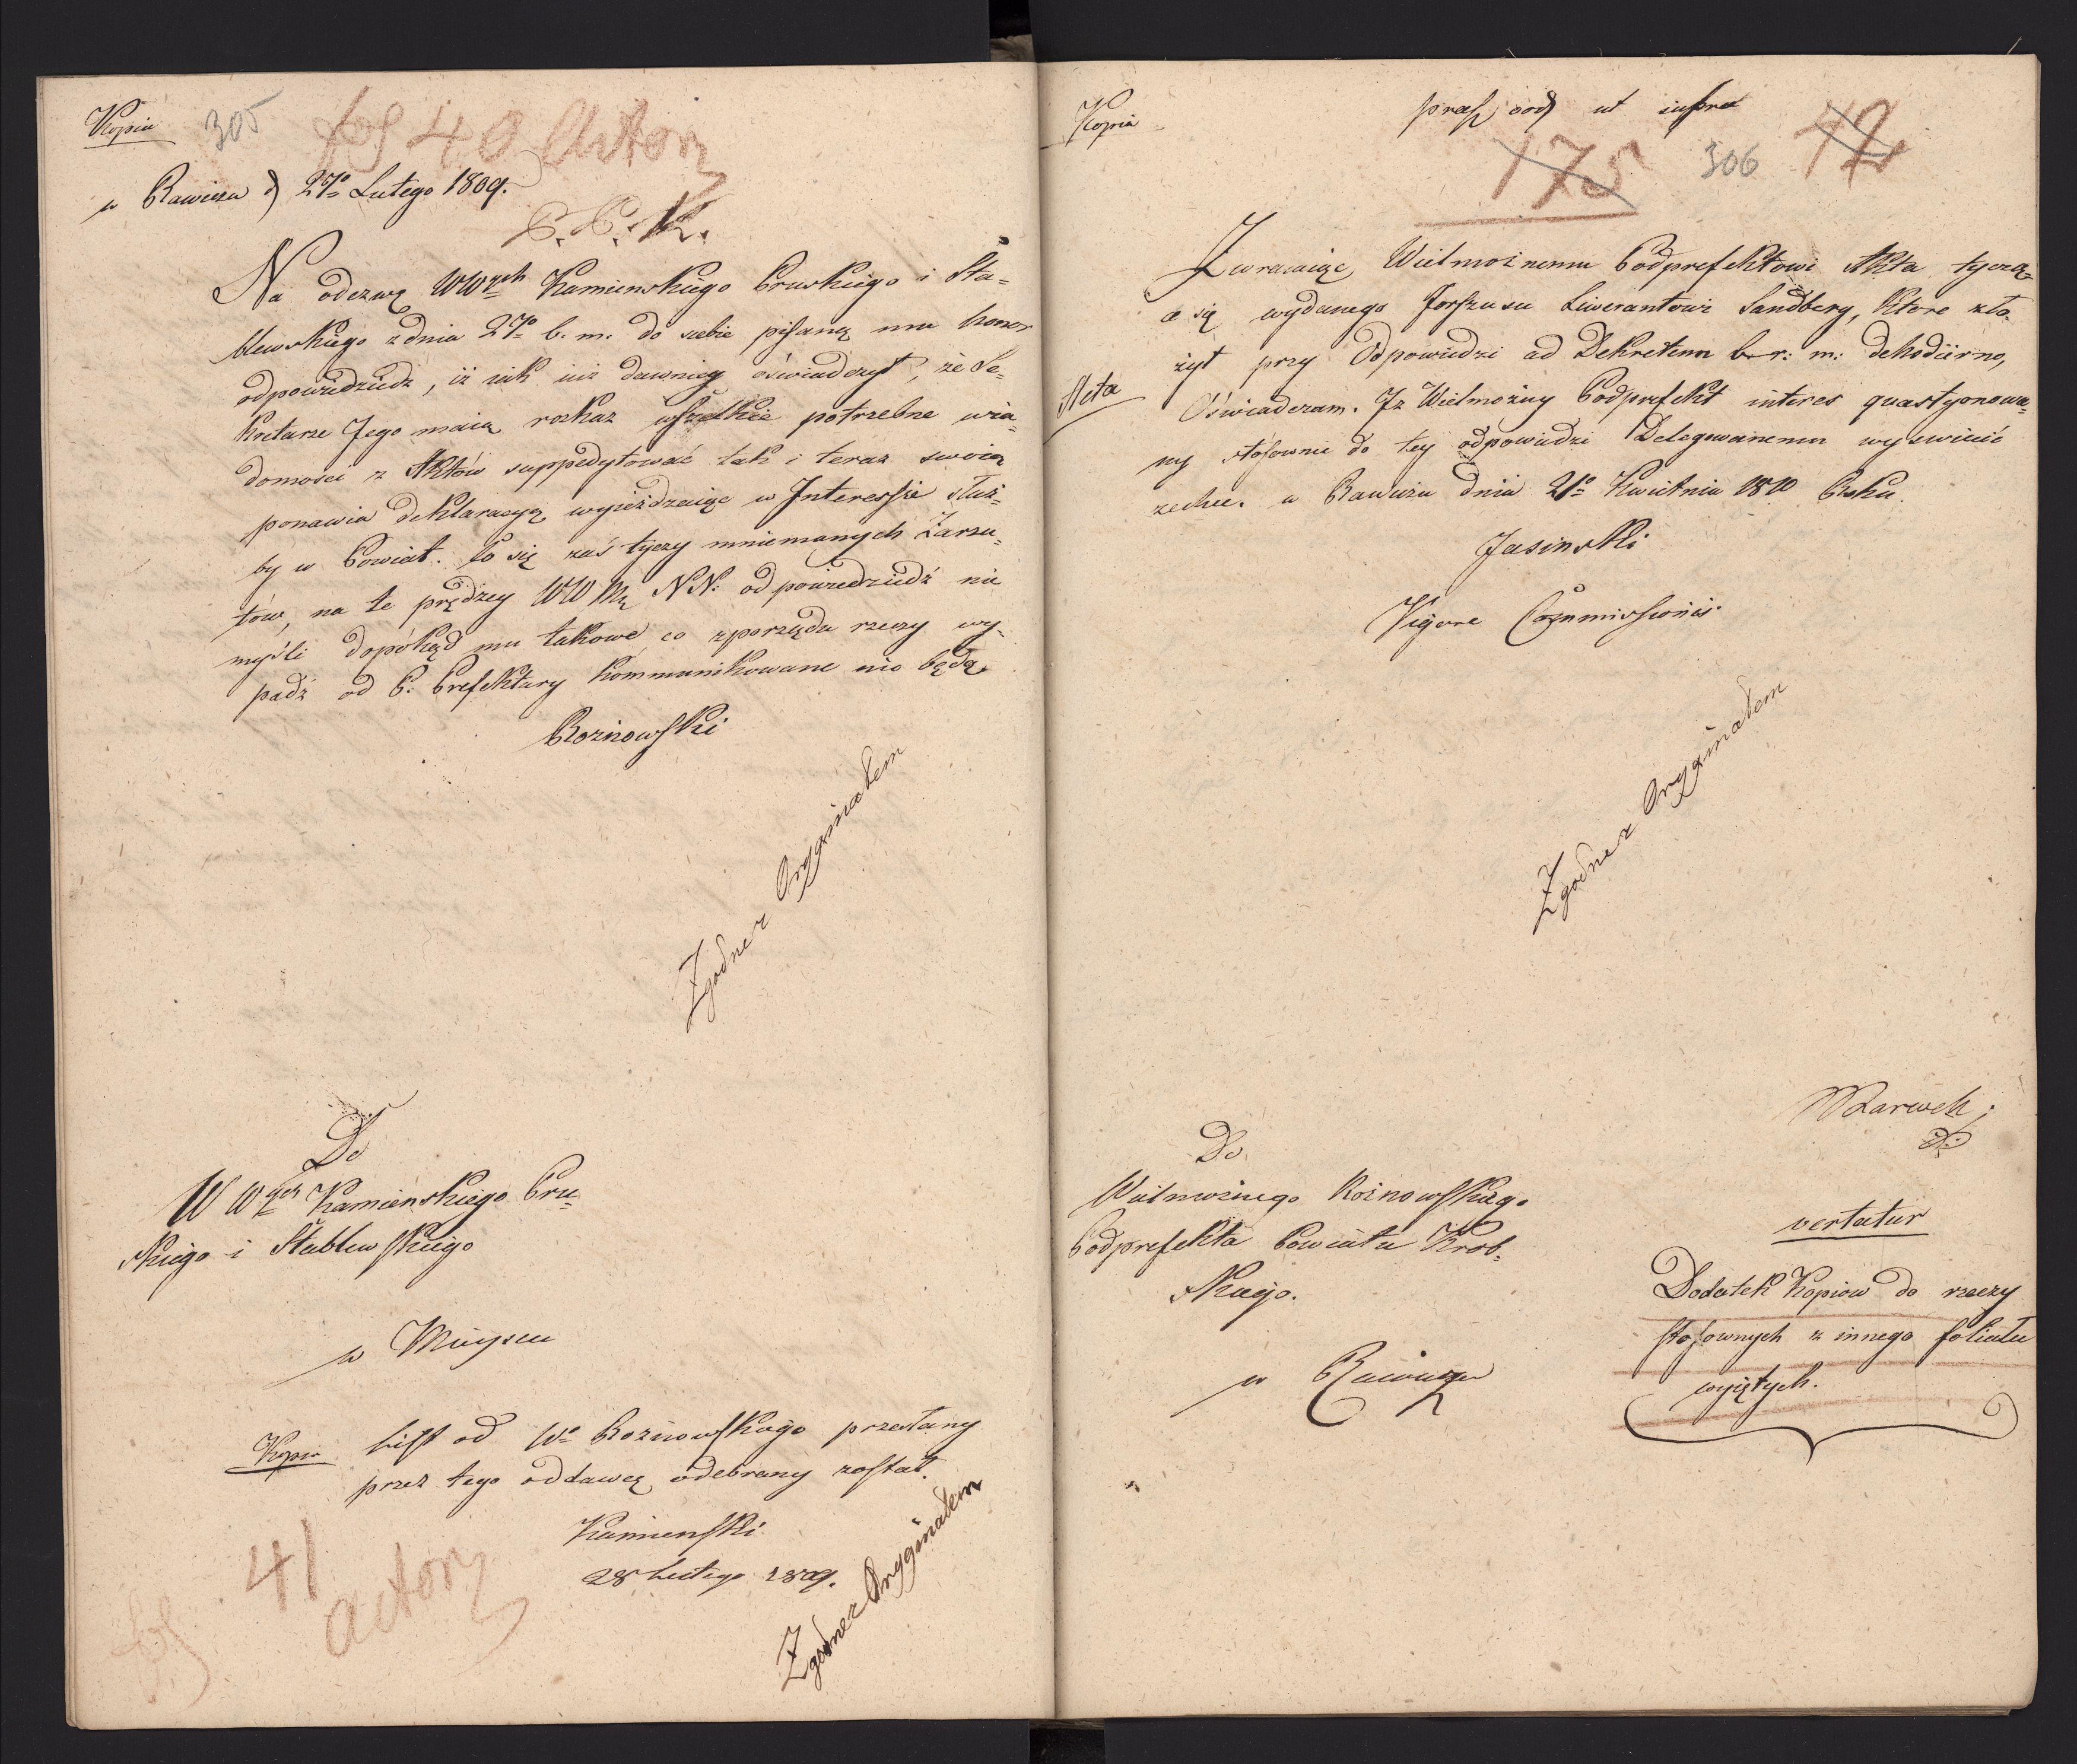 Kopia
305
fol 40 Actor
w Rawiczu d 27o Lutego 1809.
P. P. K.
Na odezwę WWzch Kamienskiego Pruskiego i Sta=
blewskiego z dnia 27o b. m. do siebie pisaną ma honor
odpowiedziedz, iż iak iuż dawniey oświadczył, że Se=
kretarze Jego maią rozkaz wszelkie potrzebne wia=
domości z Aktów suppedytować tak i teraz swoią
ponawia deklaracyą wyieżdzaiąc w Interessie służ=
by w Powiat. Co się zaś tyczy mniemanych Zarzu=
tów, na te prędzey WW NN: odpowiedziedź nie
myśli dopókąd mu takowe, co zporządu rzeczy wy=
padź od P. Prefektury kommunikowane nie będą.
Rożnowski
Zgodne z Oryginałem
Do
W Wzch Kamienskiego Pru=
skiego i Stablewskiego
w Mieyscu
Kopia
List od Wo Rożnowskiego przesłany
przez tego oddawcę odebrany został.
Kamienski
28 Lutego 1809.
Zgodne z Oryginałem
41
Actor
fol
Kopia
præs eod ut supra
175
306
42
Zwracaiąc Wielmożnemu Podprefektowi Akta tycząc=
e się wydanego Forszusu Liwerantowi Sandberg, które zło=
żył przy Odpowiedzi ad Dekretum b. r: m: dehodierno,
Acta
Oświadczam. Iż Wielmożny Podprefekt interes quæstyonowa=
ny stósownie do tey odpowiedzi Delegowanemu wyswiecić
zechce. w Rawiczu dnia 21o Kwietnia 1810 Roku.
Jasinski
Vigore Commissionis.
Zgodne z Oryginałem
Do
Wielmożnego Rożnowskiego
Podprefekta Powiatu Krob=
skiego.
w Rawiczu
vertatur
Dodatek Kopiow do rzeczy
stosownych z innego foliału
wyiętych.